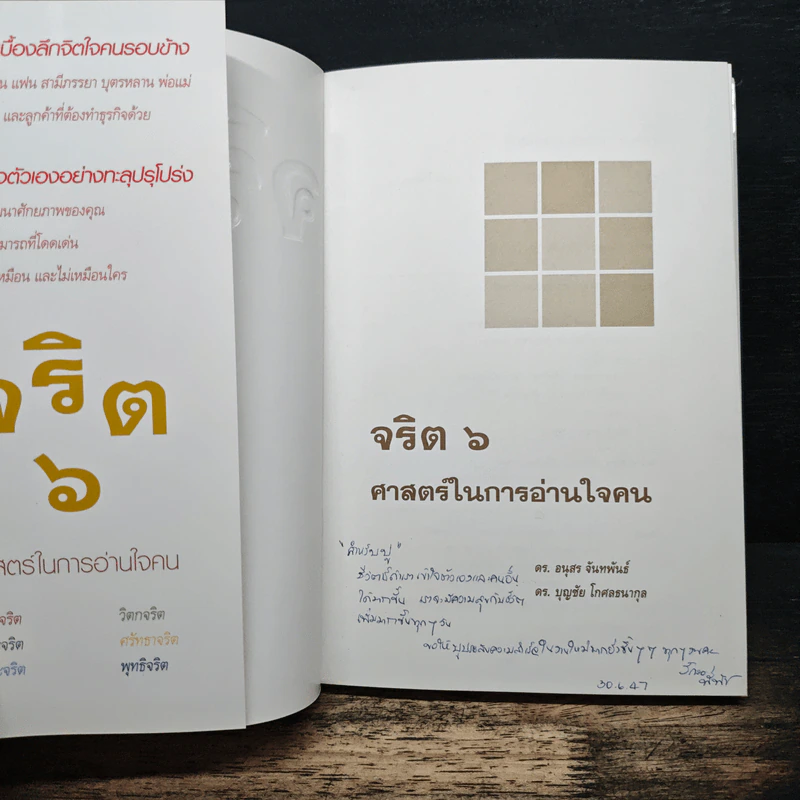 บื้องลึกจิตใจคนรอบข้าง
น แฟน สามีภรรยา บุตรหลาน พ่อแม่
และลูกค้าที่ต้องทำธุรกิจด้วย
ตัวเองอย่างทะลุปรุโปร่ง
นาศักยภาพของคุณ
มารถที่โดดเด่น
หมือน และไม่เหมือนใคร
จริต
๖
สตร์ในการอ่านใจคน
จริต วิตกจริต
จริต ศรัทธาจริต
จริต พุทธิจริต
จริต ๖
ศาสตร์ในการอ่านใจคน
ดร. อนุสร จันทพันธ์
ดร. บุญชัย โกศลธนากุล
"สำหรับปู"
ชีวิตถ้าเราเข้าใจตัวเองและคนอื่น
ได้มากขึ้น เราจะมีความสุขกับชีวิต
เพิ่มมากขึ้นทุกๆ วัน
ขอให้ปูประสบความสำเร็จในงานใหม่มากยิ่งขึ้นๆ ๆ ทุกๆ
30.6.47